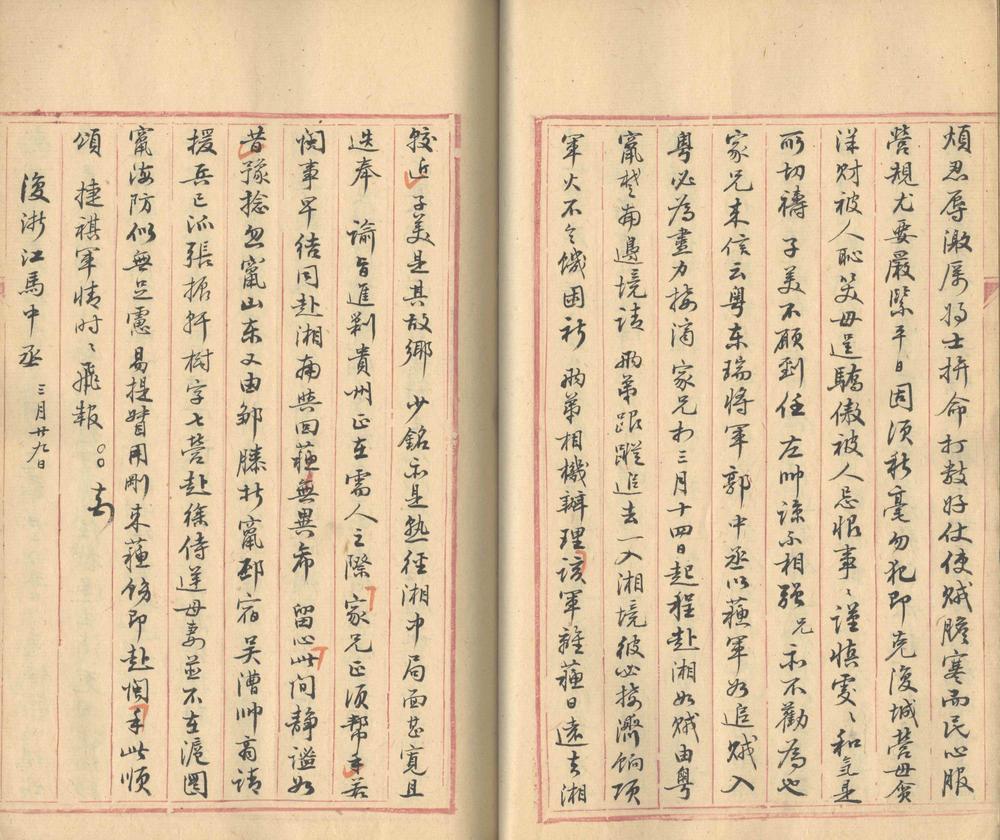 煩忍辱激厲將士拚命打數好仗使賊膽寒而民心服
營規尤要嚴緊平日固須秋毫勿犯即克復城營毋貪
洋財被人恥笑毋逞驕傲被人忌恨事〻謹慎處〻和氣是
所切禱 子美不願到任 左帥諒不相強兄亦不勸為也
家兄來信云粵東瑞將軍郭中丞以蘇軍如追賊入
粵必為盡力接濟家兄於三月十四日起程赴湘如賊由粵
竄楚南邊境請 兩弟跟蹤追去一入湘境彼必接濟餉項
軍火不令饑困祈 兩弟相機辦理該軍離蘇日遠去湘
較近子美是其故鄉 少銘亦是熟徑湘中局面甚寬且
迭奉 諭旨進剿貴州正在需人之際家兄正須幫手若
閩事早結同赴湘南與回蘇無異希 留心此間靜謐如
昔豫捻忽竄山東又由鄒滕折竄邳宿吳漕帥商請
援兵已派張振軒樹字七營赴徐侍逆母妻並不在滬圈
竄海防似無足慮 易提督用剛來蘇飭即赴閩手此順
頌 捷祺軍情時〻飛報
復浙江馬中丞 三月廿九日